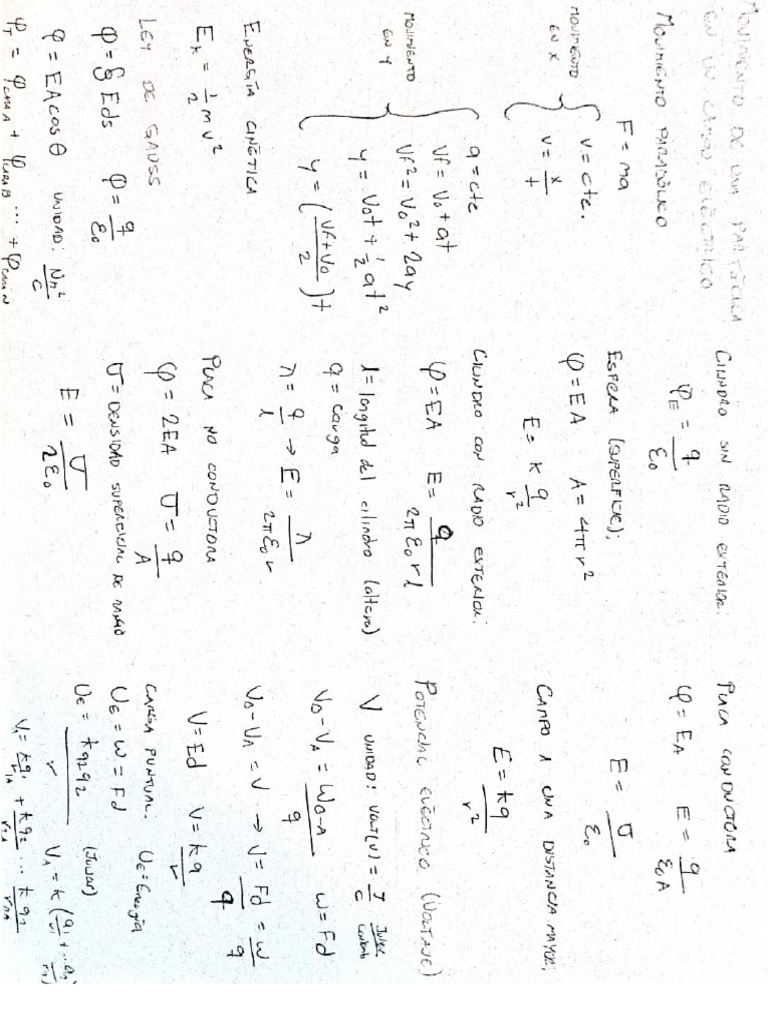 MOVIMIENTO DE UNA PARTÍCULA
EN UN CAMPO ELÉCTRICO
MOVIMIENTO PARABÓLICO
F = ma
MOVIMIENTO EN X { v = cte.
v = x/t
MOVIMIENTO EN Y { a = cte
Vf = Vo + at
Vf² = Vo² + 2ay
y = Vot + 1/2 at²
y = (Vf + Vo / 2) t
ENERGÍA CINÉTICA
Ek = 1/2 m v²
LEY DE GAUSS
φ = ∮ Eds φ = q/ε0
φ = EA cos θ UNIDAD: Nm²/C
φT = φCARA A + φCARA B ... + φCARA N
CILINDRO SIN RADIO EXTERIOR:
φE = q/ε0
ESFERA (SUPERFICIE):
φ = EA A = 4πr²
E = k q/r²
CILINDRO CON RADIO EXTERIOR:
φ = EA E = q/2πε0rl
l = longitud del cilindro (altura)
q = carga
λ = q/l → E = λ/2πε0r
PLACA NO CONDUCTORA
φ = 2EA σ = q/A
σ = DENSIDAD SUPERFICIAL DE
E = σ/2ε0
PLACA CONDUCTORA
φ = EA E = q/ε0A
E = σ/ε0
CAMPO A UNA DISTANCIA MAYOR:
E = kq/r²
POTENCIAL ELÉCTRICO (VOLTAJE)
V UNIDAD: VOLT(V) = J/C
VB - VA = WB-A/q w = Fd
VB - VA = V → V = Fd/q = w/q
V = Ed V = kq/r
CARGA PUNTUAL. UE = Energía
UE = w = Fd
UE = kq2q2/r (Joules)
VA = k(q1/
V1 = kq1/r1A + kq2/r2A ...